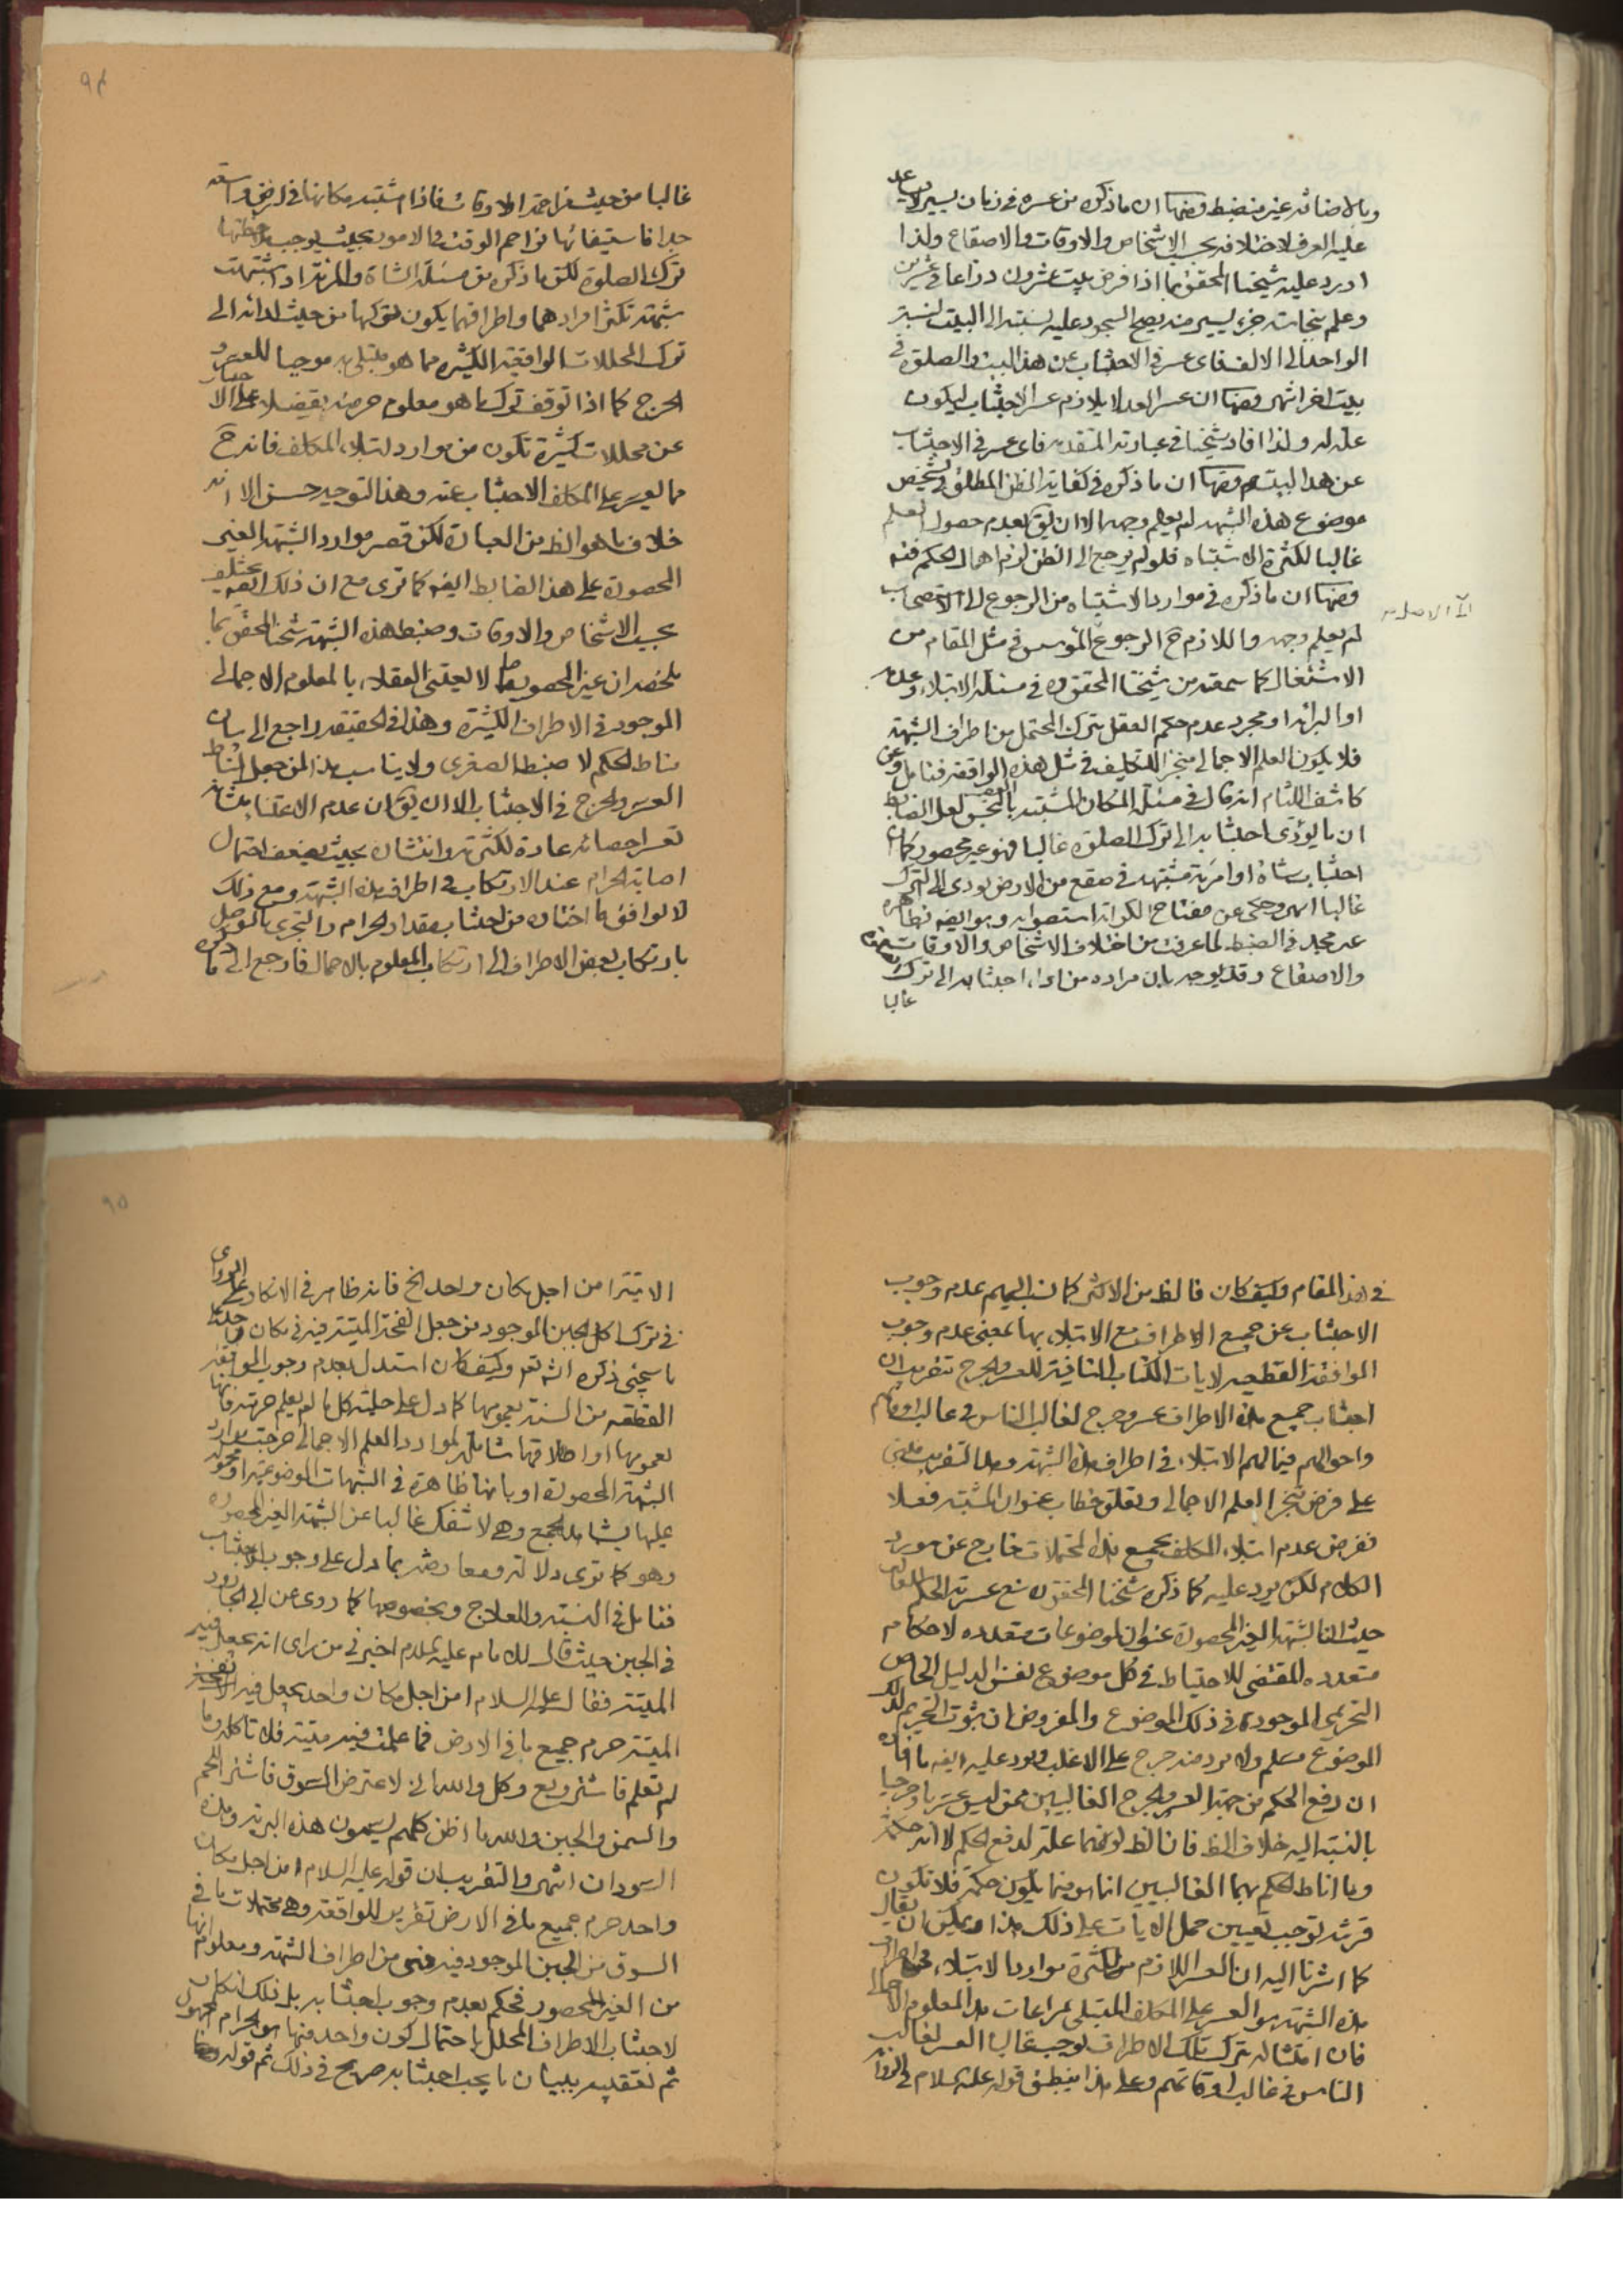 وبالاضافه غير منضبط ومنها ان ما ذكره من عسره فى زمان يسير لا يساعد
عليه العرف لاختلافه بحسب الاشخاص والاوقات والاصقاع ولذا
اورد عليه شيخنا المحقق بما اذا فرض بيت عشرون ذراعا فى عشرين
وعلم بنجاسة جزء يسير منه يصح السجود عليه نسبته الى البيت نسبة
الواحد الى الالف فاى عسر فى الاجتناب عن هذا البيت والصلوة فى
بيت اخر انتهى ومنها ان عسر العد لا يلازم عسر الاجتناب ليكون
علة له ولذا افاد شيخنا فى عبارته المتقدمه فاى عسر فى الاجتناب
عن هذا البيت ومنها ان ما ذكره فى كفاية الظن المطلق فى تشخيص
موضوع هذه الشبهه لم يعلم وجهه الا ان يق بعدم حصول العلم
غالبا لكثرة الاشتباه فلو لم يرجع الى الظن لزم اهمال الحكم فيه
ومنها ان ما ذكره فى موارد الاشتباه من الرجوع الى الاستصحاب
لم يعلم وجهه واللازم ح الرجوع المؤسس فى مثل المقام من
الاشتغال كما سمعته من شيخنا المحقق ره فى مسئلة الابتلاء وعدمه
او البرائه او مجرد عدم حكم العقل بترك المحتمل من اطراف الشبهة
فلا يكون العلم الاجمالى منجزا للتكليف فى مثل هذه الواقعة فتامل وعن
كاشف اللثام انه قال فى مسئلة المكان المشتبه بالنجس لعل الضابط
ان ما يؤدى اجتنابه الى ترك الصلوة غالبا فهو غير محصور كما ان
اجتناب شاة او امرئة مشتبهة فى صقع من الارض يودى الى الترك
غالبا انتهى وحكى عن مفتاح الكرامه استصوابه وهو ايضه بظاهره
غير مجد فى الضبط لما عرفت من اختلاف الاشخاص والاوقات
والاصقاع وقد يوجه بان مراده من اداء اجتنابه الى ترك
غالبا
٩٤
غالبا من حيث مزاحمة الاوقات فاذا اشتبه مكانها فى ارض واسعة
جدا فاستيفائها مزاحم الوقت والامور بحيث يوجب
ترك الصلوة لكن ما ذكره من مسئلة الشاة والمرئة اذا اشتبهت
شبهة تكثر افرادهما واطرافهما يكون تركها من حيث ادائه الى
ترك المحللات الواقعية الكثيره مما هو مبتلى به موجبا للعسر و
الحرج كما اذا توقف ترك ما هو معلوم حرمته تفصيلا على الاجتناب
عن محللات كثيرة تكون من موارد ابتلاء المكلف فانه ح
مما يعسر على المكلف الاجتناب عنه وهذا التوجيه حسن الا انه
خلاف ما هو الظ من العبارة لكن قصر موارد الشبهة الغير
المحصورة على هذا الضابط ايضه كما ترى مع ان ذلك ايضه يختلف
بحسب الاشخاص والاوقات وضبط هذه الشبهة شيخنا المحقق بما
ملخصه ان غير المحصور ما لا يعتنى العقلاء بالمعلوم الاجمالى
الموجود فى الاطراف الكثيرة وهذا فى الحقيقة راجع الى بيان
مناط الحكم لا ضبط الصغرى ولا يناسب هذا لمن جعل المناط
العسر والحرج فى الاجتناب الا ان يق ان عدم الاعتناء بشانه
تعسر احصائه عادة لكثرته وانتشاره بحيث يضعف احتمال
اصابة الحرام عند الارتكاب فى اطراف هذه الشبهة ومع ذلك
لا يوافق ما اختاره من اجتناب مقدار الحرام والتجرى بالتوصل
بارتكاب بعض الاطراف الى ارتكاب المعلوم بالاجمال فارجع الى ما ذكره
فى هذا المقام وكيف كان فالظ من الاكثر كما نسب اليهم عدم وجوب
الاجتناب عن جميع الاطراف مع الابتلاء بها بمعنى عدم وجوب
الموافقة القطعيه لايات الكتاب النافية للعسر والحرج بتقريب ان
اجتناب جميع هذه الاطراف عسر وحرج لغالب الناس فى غالب اوقاتهم
واحوالهم فيما لهم الابتلاء فى اطراف هذه الشبهة وهذا التقريب مبنى
على فرض تنجز العلم الاجمالى وتعلق خطاب بعنوان المشتبه فعلا
ففرض عدم ابتلاء المكلف بجميع هذه المحتملات خارج عن مورد
الكلام لكن يرد عليه كما ذكره شيخنا المحقق ره منع عسرية الحكم
حيث ان الشبهة الغير المحصورة عنوان لموضوعات متعدده لاحكام
متعدده المقتضى للاحتياط فى كل موضوع نفس الدليل الخاص
التحريمى الموجود فى ذلك الموضوع والمفروض ان ثبوت التحريم لذلك
الموضوع مسلم ولا يرد منه حرج على الاغلب ويرد عليه ايضه ما افاده
ان رفع الحكم من جهة العسر والحرج الغالبيين عمن ليس عسريا وحرجيا
بالنسبة اليه خلاف الظ فان الظ كونهما علة لدفع الحكم لا انه حكمة
وما اناط الحكم بهما الغالبيين انما هو فيما يكون حكمة فلا تكون
قرينة توجب تعيين حمل الايات على ذلك هذا ويمكن ان يقال
كما اشرنا اليه ان العسر اللازم من كثرة موارد الابتلاء فى اطراف
هذه الشبهة هو العسر على المكلف المبتلى بمراعات هذا المعلوم الاجمالى
فان امتثاله بترك تلك الاطراف يوجب غالبا العسر لغالب
الناس فى غالب اوقاتهم وعلى هذا ينطبق قوله عليه السلام فى الرواية
٩٥
الاتية امن اجل مكان واحد الخ فانه ظاهر فى الانكار على الراوى
فى ترك اكل الجبن الموجود من جعل انفحة الميتة فيه فى مكان واحد
ما سيجئ ذكره انش تعم وكيف كان استدل بعدم وجوب الموافقة
القطعيه من السنة بعمومها كما دل على حلية كل ما لم يعلم حرمته فانها
بعمومها او اطلاقها شاملة لموارد العلم الاجمالى خرجت موارد
الشبهة المحصورة او بانها ظاهرة فى الشبهات الموضوعية او محمولة
عليها بشاهد الجمع وهى لا تنفك غالبا عن الشبهة الغير المحصوره
وهو كما ترى دلالة ومعارضة بما دل على وجوب الاجتناب
فتامل فى النسبة والعلاج وبخصوصها كما روى عن ابى الجارود
فى الجبن حيث قال للامام عليه السلام اخبرنى من راى انه يجعل فيه
الميتة فقال عليه السلام امن اجل مكان واحد يجعل فيه
الميتة حرم جميع ما فى الارض فما علمت فيه ميتة فلا تاكله وما
لم تعلم فاشتر وبع وكل والله انى لاعترض السوق فاشترى اللحم
والسمن والجبن والله ما اظن كلهم يسمون هذه البربر وهذه
السودان انتهى والتقريب ان قوله عليه السلام امن اجل مكان
واحد حرم جميع ما فى الارض تقرير للواقعة وهى محتملات ما فى
السوق من الجبن الموجود فيه فهى من اطراف الشبهة ومعلوم انها
من الغير المحصور فحكم بعدم وجوب اجتنابه بل ذلك انكار
لاجتناب الاطراف المحلل باحتمال كون واحد منها هو الحرام المجهول
ثم تعقيبه ببيان ما يجب اجتنابه صريح فى ذلك ثم قوله